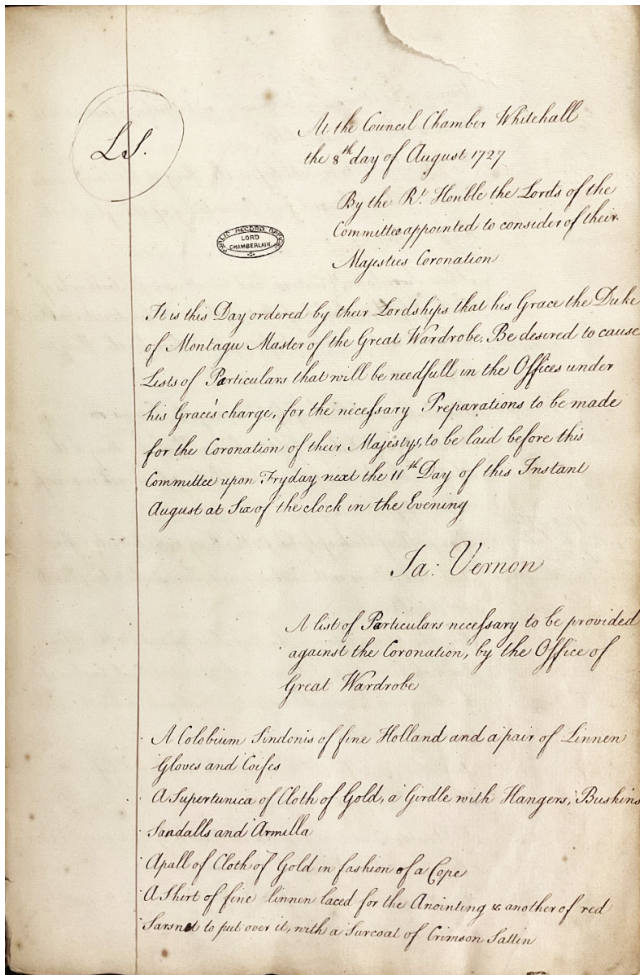 LS.
At the Council Chamber Whitehall
the 8th day of August 1727
PUBLIC RECORD OFFICE
LORD
CHAMBERLAIN
By the Rt. Honble the Lords of the
Committee appointed to consider of their
Majesties Coronation
It is this Day ordered by their Lordships that his Grace the Duke
of Montagu Master of the Great Wardrobe, Be desired to cause
Lists of Particulars that will be needfull in the Offices under
his Grace's charge, for the necessary Preparations to be made
for the Coronation of their Majestys, to be laid before this
Committee upon Fryday next the 11th Day of this Instant
August at Six of the clock in the Evening
Ja: Vernon
A list of Particulars necessary to be provided
against the Coronation, by the Office of
Great Wardrobe
A Colobium Sindonis of fine Holland and a pair of Linnen
Gloves and Coifes
A Supertunica of Cloth of Gold, a Girdle with Hangers, Buskins
Sandalls and Armilla
A pall of Cloth of Gold in fashion of a Cope
A Shirt of fine linnen laced for the Anointing & another of red
Sarsnet to put over it, with a Surcoat of Crimson Sattin